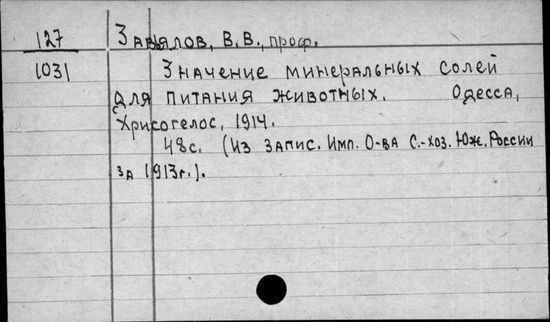 127 Завьялов, В.В., проф.
1031 Значение минеральных солей
для питания животных. Одесса,
"Хрисогелос, 1914.
48с. (Из Запис. Имп. О-ва С.-хоз. Юж. России
за 1913г.).